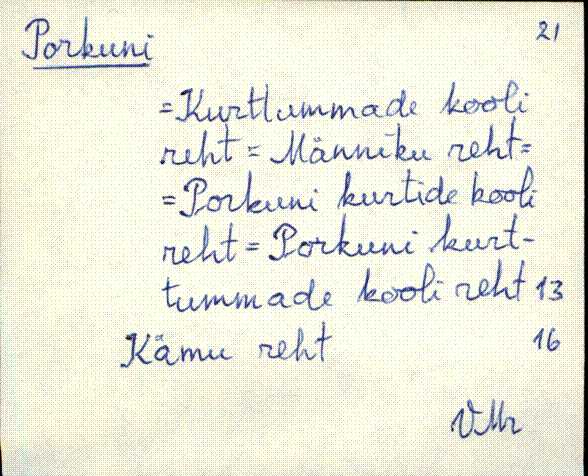 Porkuni 21
= Kurttummade kooli
reht = Männiku reht =
= Porkuni kurtide kooli
reht = Porkuni kurt-
tummade kooli reht 13
Kämu reht 16
VMr